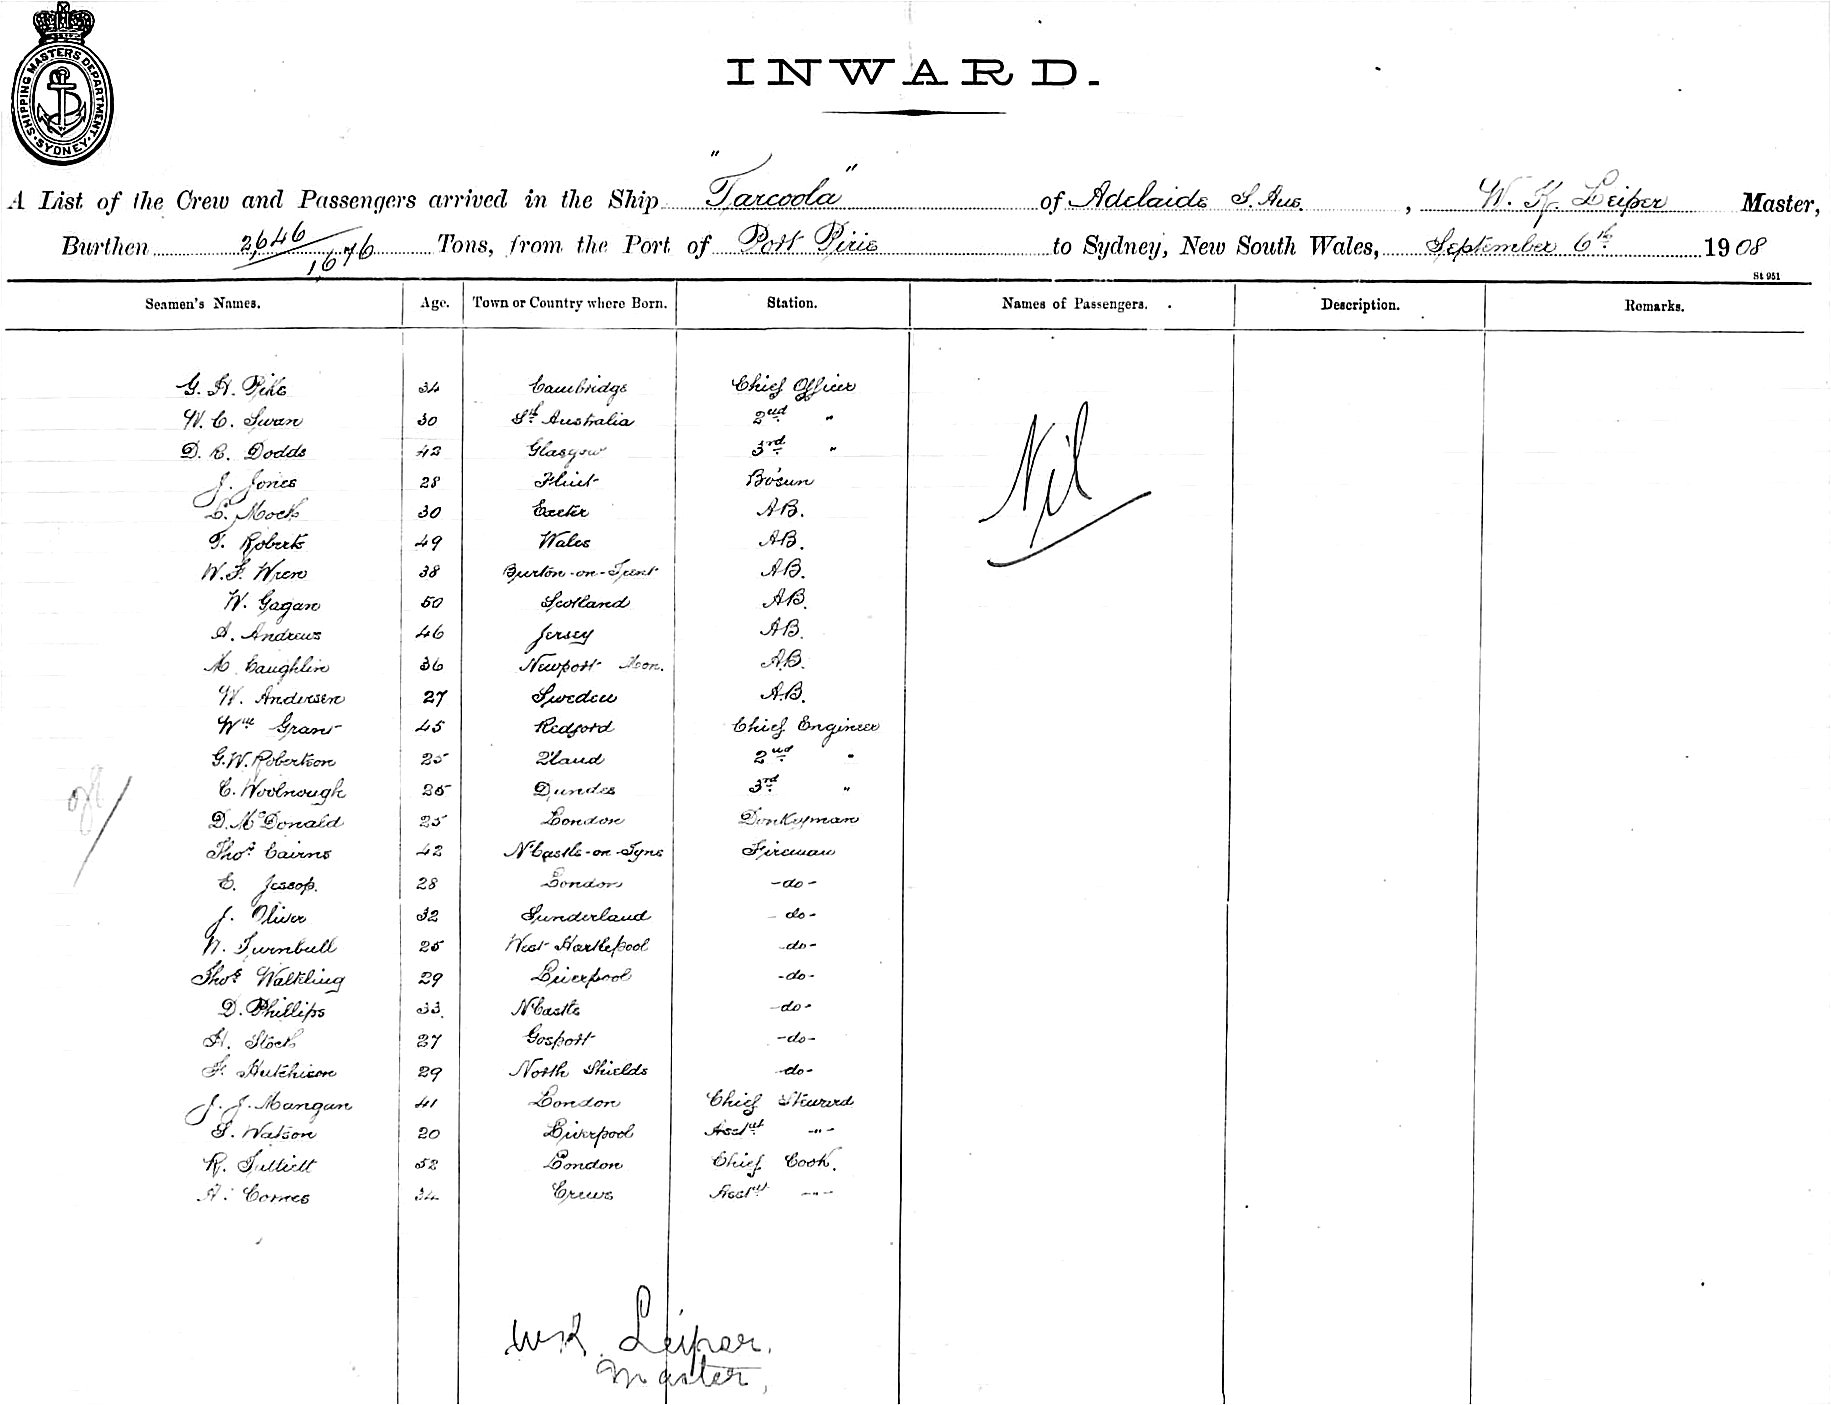 SHIPPING MASTERS DEPARTMENT · SYDNEY ·
INWARD.
A List of the Crew and Passengers arrived in the Ship "Tarcoola" of Adelaide S. Aus. , W. K. Leiper Master,
Burthen 2,646 / 1,676 Tons, from the Port of Port Pirie to Sydney, New South Wales, September 6th 1908
St 951
Seamen's Names. Age. Town or Country where Born. Station. Names of Passengers. Description. Remarks.
G. H. Pike 34 Cambridge Chief Officer
Nil
W. C. Swan 30 Sth Australia 2nd "
D. C. Dodds 42 Glasgow 3rd "
J. Jones 28 Flint Bo'sun
Mock 30 Exeter A.B.
T. Roberts 49 Wales A.B.
W. F. Wren 38 Burton-on-Trent A.B.
W. Gagan 50 Scotland A.B.
A. Andrews 46 Jersey A.B.
M Caughlin 36 Newport Mon. A.B.
W. Andersen 27 Sweden A.B.
Wm Grant 45 Redford Chief Engineer
G. W. Robertson 25 2nd "
C. Woolnough 25 Dundee 3rd "
D. McDonald 25 London Donkeyman
Thos Cairns 42 N'Castle-on-Tyne Fireman
E. Jessop. 28 London -do-
J. Oliver 32 Sunderland -do-
N. Turnbull 25 West Hartlepool -do-
Thos Walkling 29 Liverpool -do-
D. Phillips 33. N'Castle -do-
H. Stock 27 Gosport -do-
F. Hutchison 29 North Shields -do-
J. J. Mangan 41 London Chief Steward
S. Watson 20 Liverpool Asst -"-
R. 52 London Chief Cook.
A. Comes 34 Crewe Asst -"-
W K. Leiper.
Master,